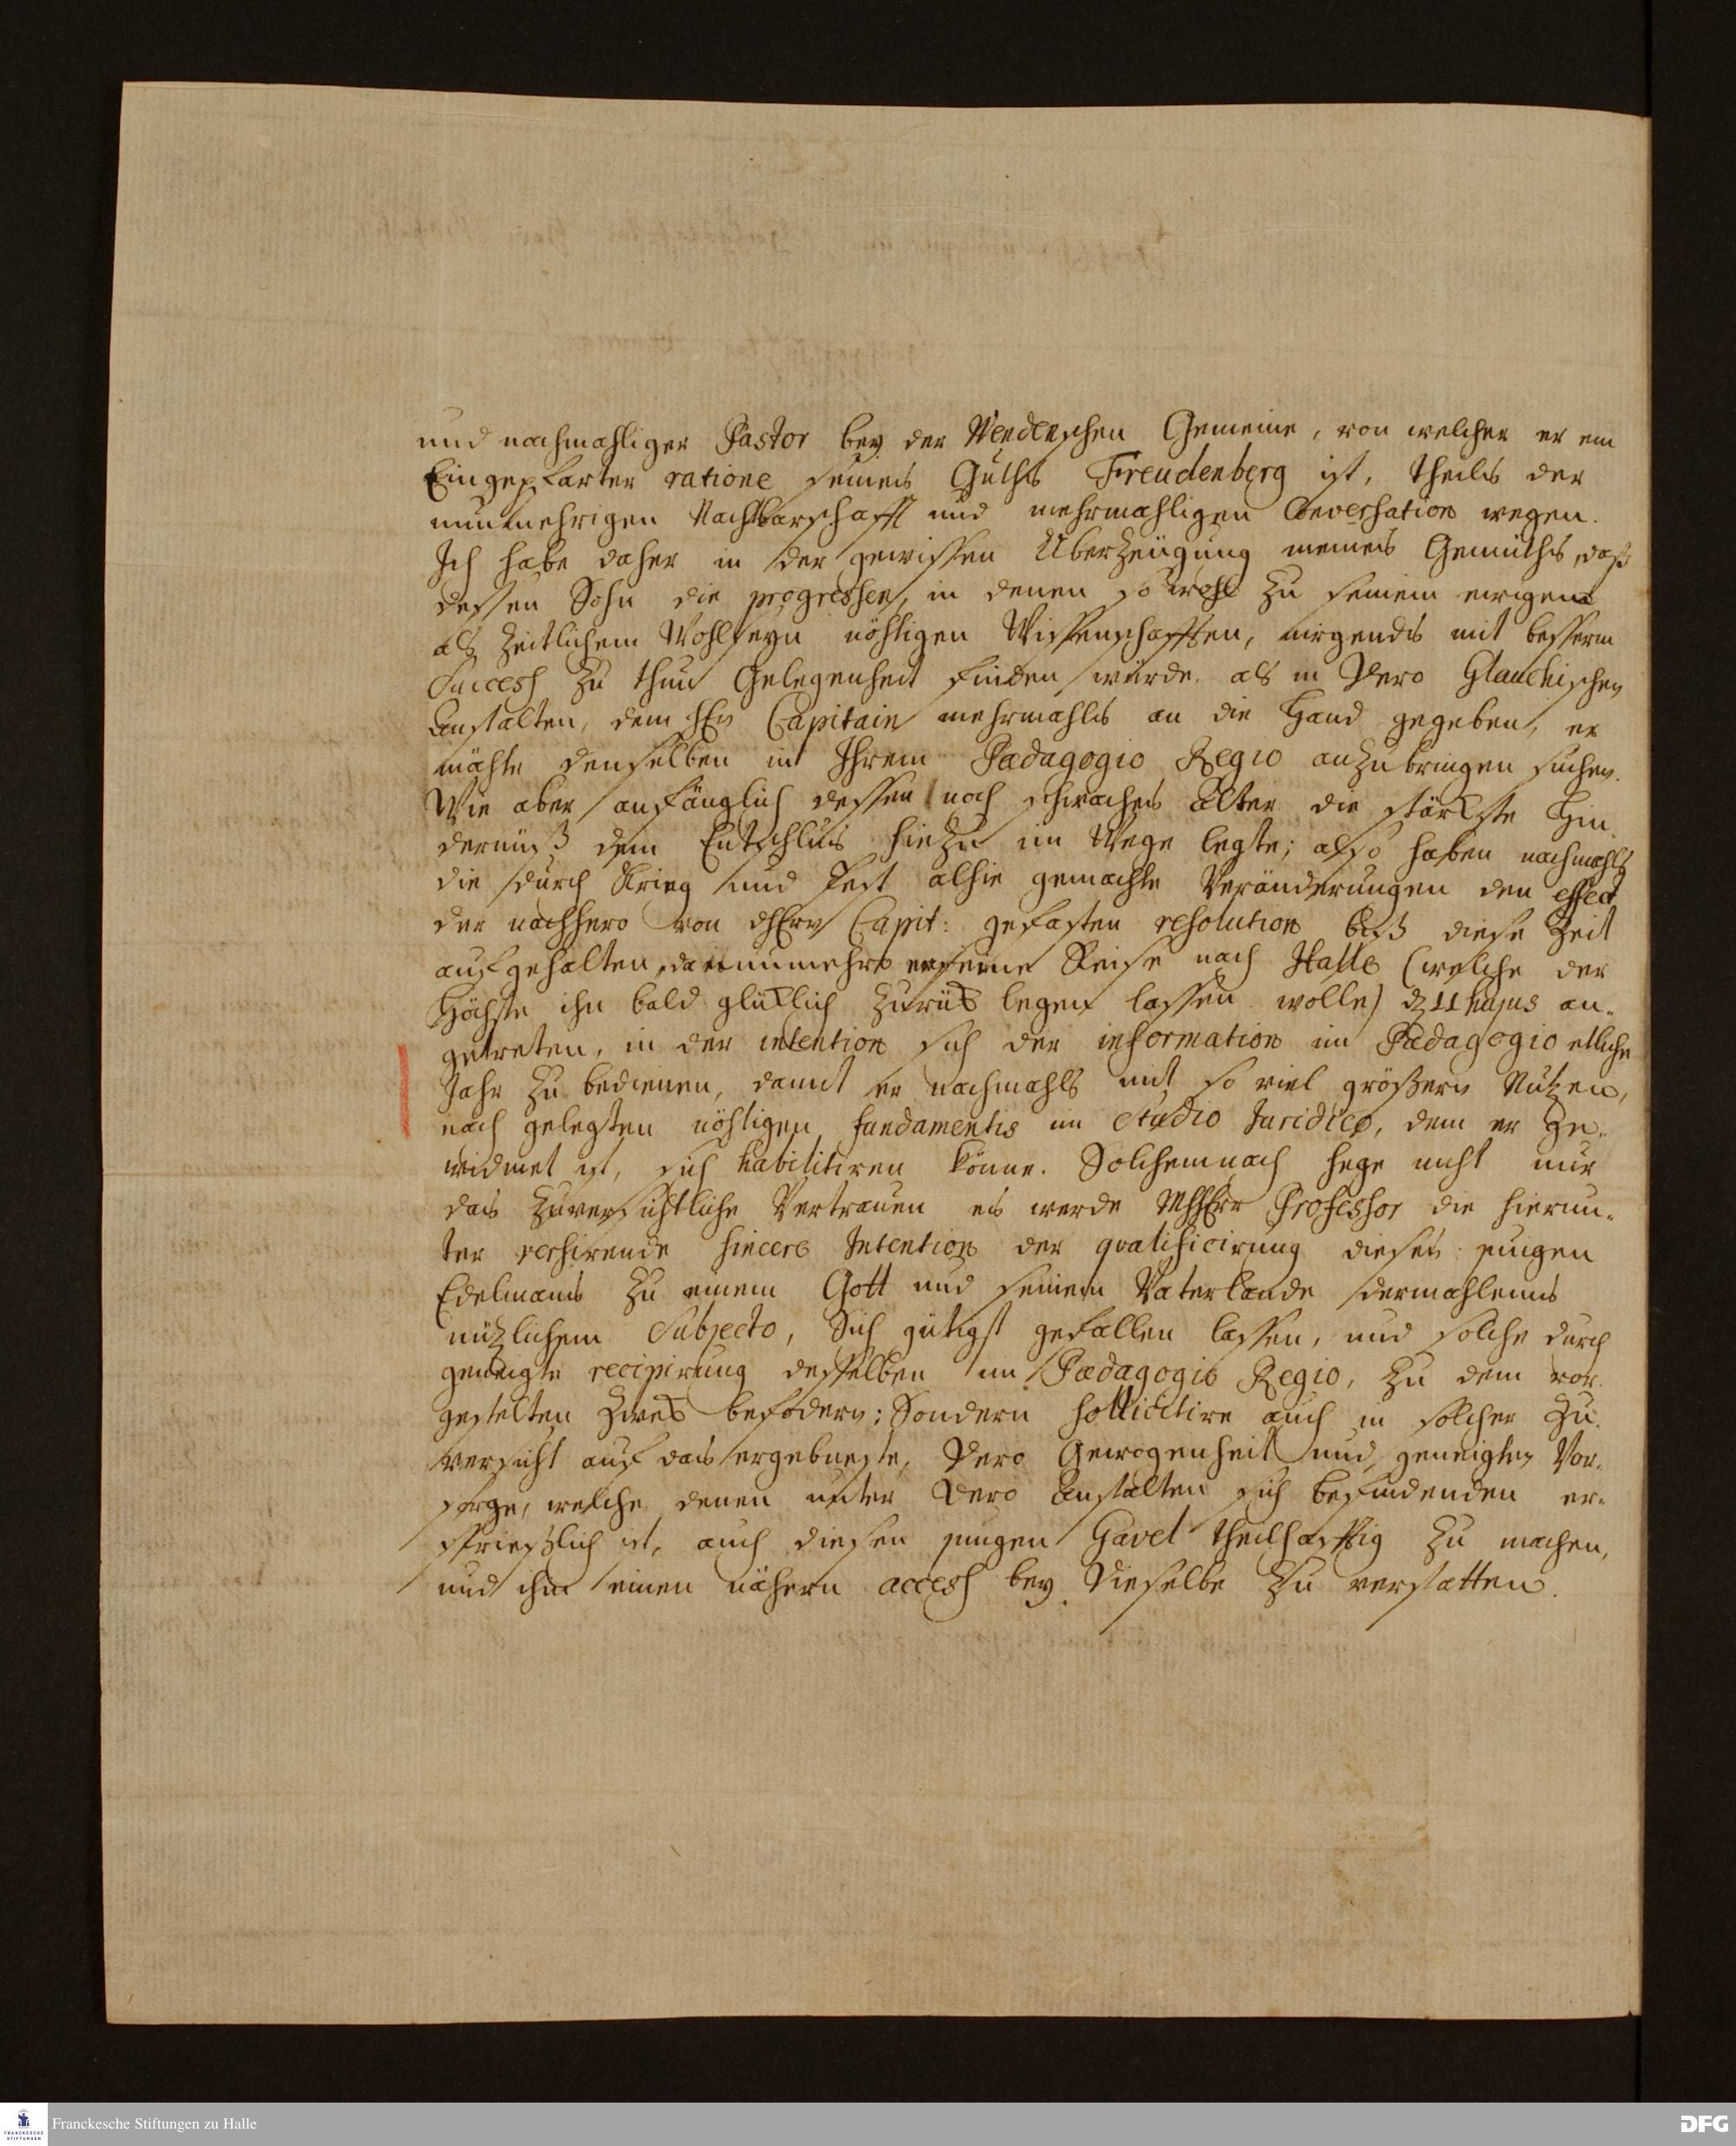 und nachmahliger Pastor bey der Wendenschen Gemeine, von welcher er ein
Eingepfarter ratione seines Guths Freudenberg ist, theils der
nunmehrigen Nachbarschafft und mehrmahligen Conversation wegen.
Ich habe daher in der gewissen Uberzeugung meines Gemüths, daß
dessen Sohn die progressen, in denen so wohl zu seinem ewigen
als zeitlichem Wohlseyn nöhtigen Wissenschafften, nirgends mit besserm
Success zu thun Gelegenheit finden würde, als in Dero Glauchischen
Anstalten, dem HEn Capitain mehrmahls an die Hand gegeben, er
möchte denselben in Ihrem Pædagogio Regio anzubringen suchen.
Wie aber anfänglich dessen noch schwaches Alter die stärkste Hin„
dernüß dem Entschlus hiezu im Wege legte; also haben nachmahls
die durch Krieg und Pest alhie gemachte Veränderungen den effect
der nachhero von HErn Capit: gefasten resolution biß diese Zeit
aufgehalten, da nunmehro er seine Reise nach Halle (welche der
Höchste ihn bald glüklich zurük legen lassen wolle) d 11 hujus an„
getreten, in der intention sich der information im Pædagogio etliche
Jahr zu bedienen, damit er nachmahls mit so viel größern Nutzen,
nach gelegten nöhtigen fundamentis im Studio Juridico, dem er ge„
widmet ist, sich habilitiren könne. Solchemnach hege nicht nur
das zuversichtliche Vertrauen es werde MhHErr Professor die hierun„
ter versirende sincere Intention der qvalificirung dieses jungen
Edelmans zu einem Gott und seinem Vaterlande dermahleins
nützlichem Subjecto, Sich gütigst gefallen lassen, und solche durch
geneigte recipirung desselben im Pædagogio Regio, zu dem vor„
gestelten Zwek befodern; Sondern sollicitire auch in solcher Zu„
versicht auf das ergebneste, Dero Gewogenheit und geneigten Vor„
sorge, welche denen unter Dero Anstalten sich befindenden er„
sprießlich ist, auch diesen jungen Gavel theilhafftig zu machen,
und ihm einen nähern access bey Dieselbe zu verstatten.
Franckesche Stiftungen zu Halle
DFG